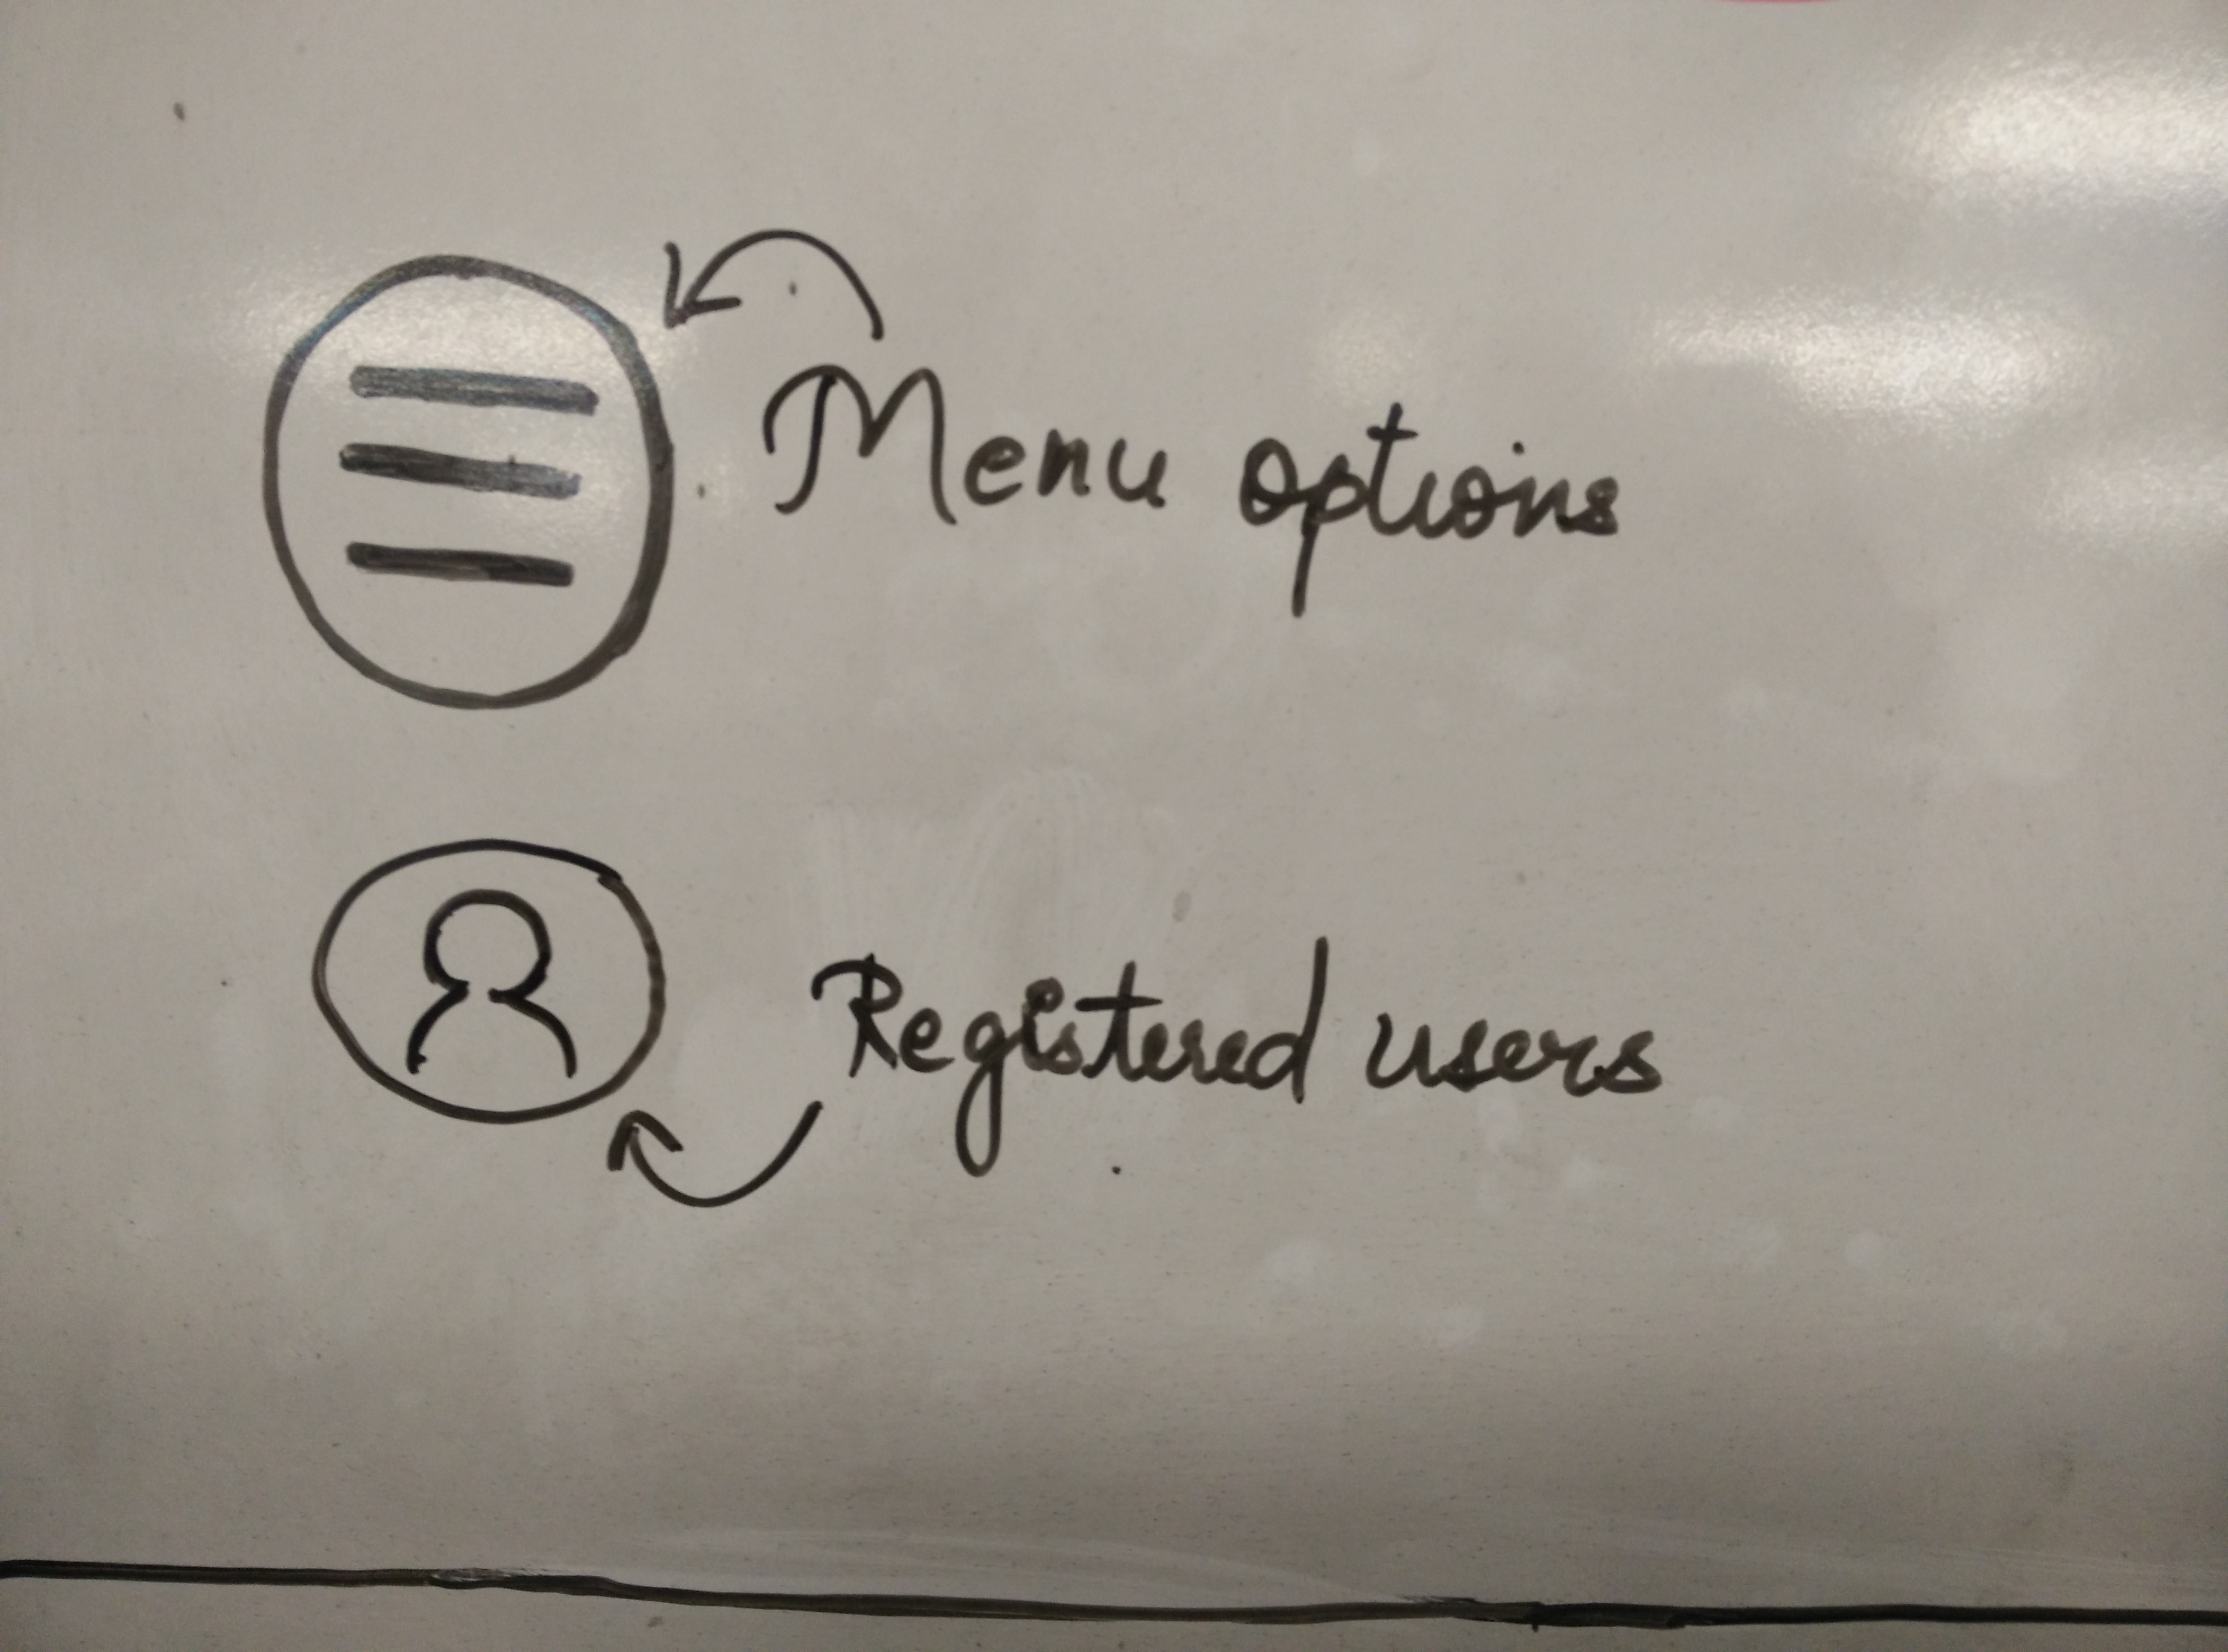 Menu options
Registered users